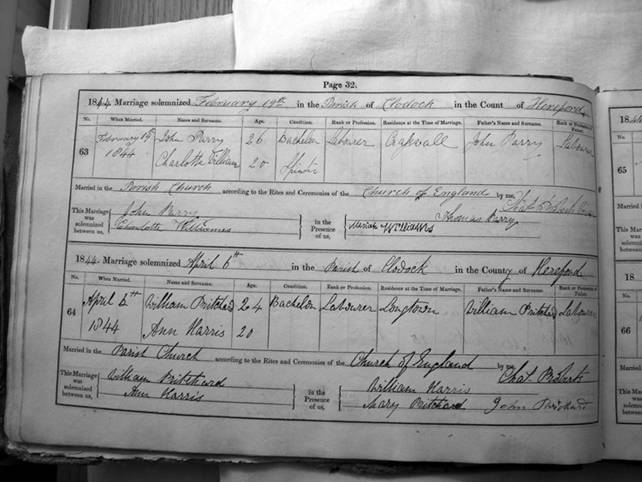 Page 32.
1844. Marriage solemnized February 19th in the Parish of Clodock in the Count of Hereford
No. When Married. Name and Surname. Age. Condition. Rank or Profession. Residence at the Time of Marriage. Father's Name and Surname. Rank or Profession of Father.
63 February 19th John Parry 26 Bachelor Labourer John Parry Labourer
1844 Charlotte Williams 20
Married in the Parish Church according to the Rites and Ceremonies of the Church of England by me,
This Marriage was solemnized between us, John Parry in the Presence of us, Thomas Parry
Charlotte Williames Williams
1844. Marriage solemnized April 6th in the Parish of Clodock in the County of Hereford
No. When Married. Name and Surname. Age. Condition. Rank or Profession. Residence at the Time of Marriage. Father's Name and Surname. Rank or Profession of Father.
64 April 6th William Pritchard 24 Bachelor Labourer Longtown William Pritchard Labourer
1844 Ann Harris 20
Married in the Parish Church according to the Rites and Ceremonies of the Church of England by
This Marriage was solemnized between us, William Pritchard in the Presence of us, William Harris
Ann Harris Mary Pritchard John
184
No.
65
184
No.
66